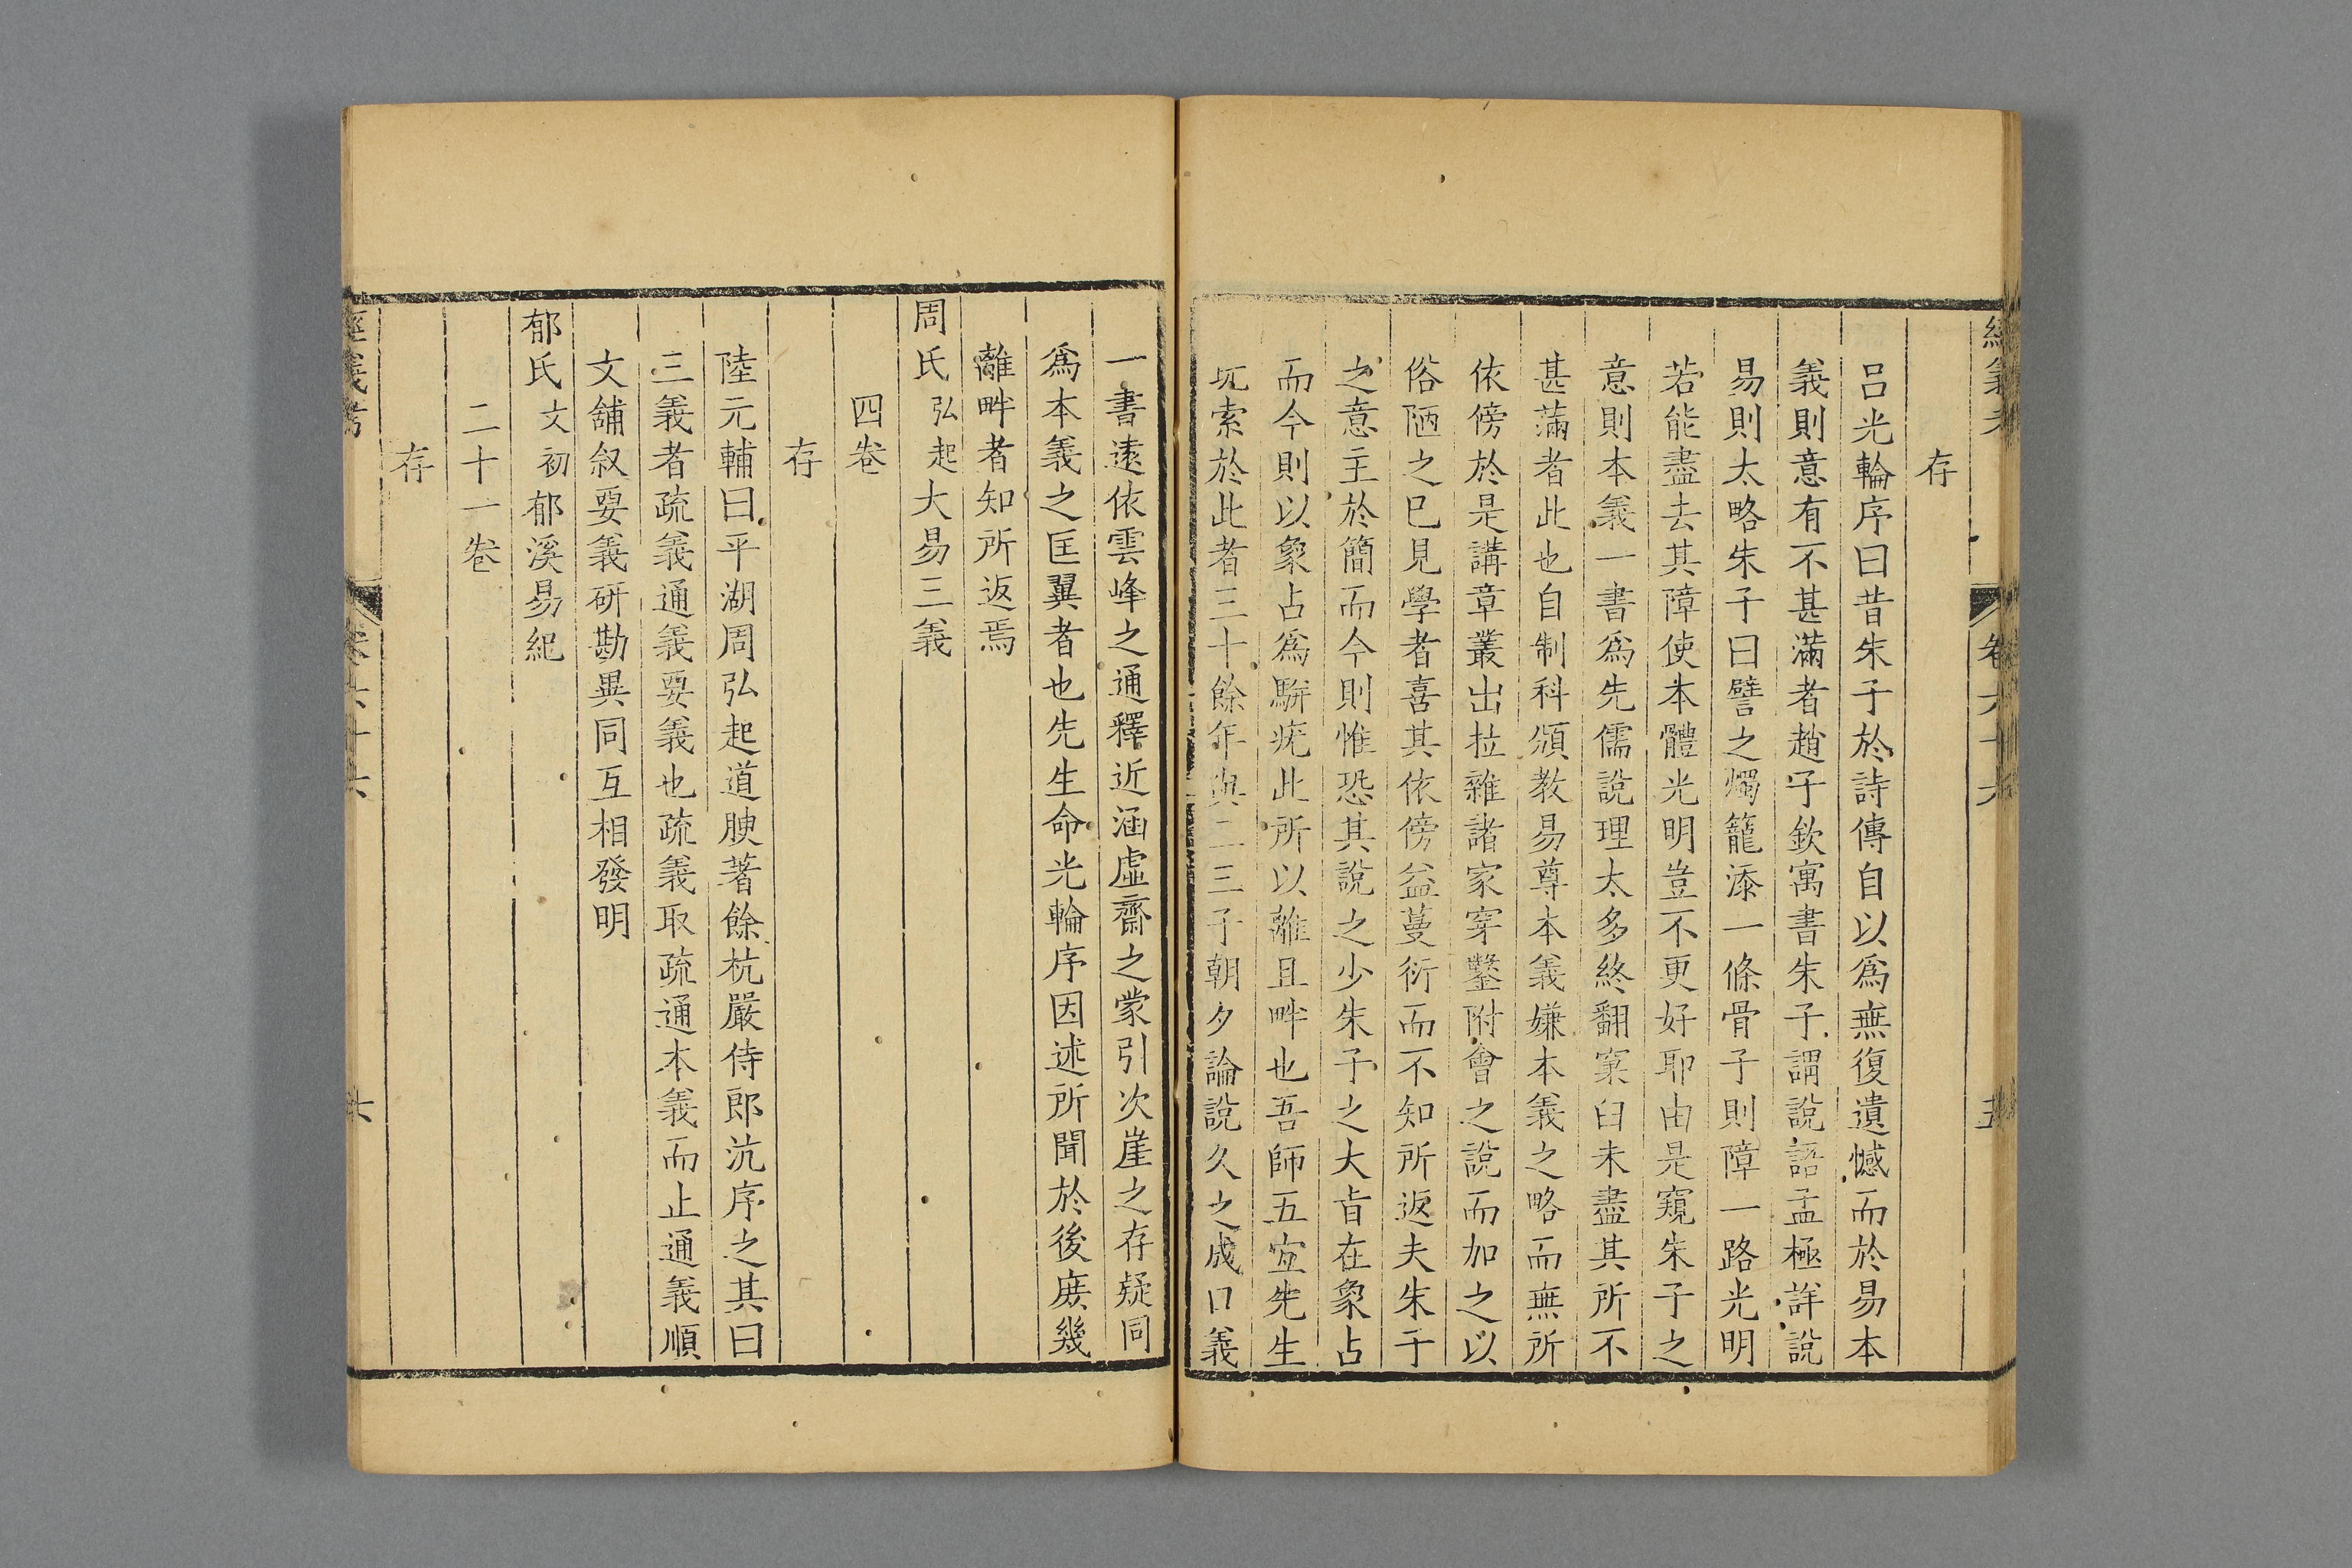 經義考
卷六十六
五
存
呂光輪序曰昔朱子於詩傳自以爲無復遺憾而於易本
義則意有不甚滿者趙子欽寓書朱子謂說語孟極詳說
易則太略朱子曰譬之燭籠添一條骨子則障一路光明
若能盡去其障使本體光明豈不更好耶由是窺朱子之
意則本義一書爲先儒說理太多終翻窠臼未盡其所不
甚滿者此也自制科頒教易尊本義嫌本義之略而無所
依傍於是講章叢出拉雜諸家穿鑿附會之說而加之以
俗陋之已見學者喜其依傍益蔓衍而不知所返夫朱子
之意主於簡而今則惟恐其說之少朱子之大旨在象占
而今則以象占爲駢疣此所以離且畔也吾師五宜先生
玩索於此者三十餘年與二三子朝夕論說久之成口義
一書遠依雲峰之通釋近涵虛齋之蒙引次崖之存疑同
爲本義之匡翼者也先生命光輪序因述所聞於後庶幾
離畔者知所返焉
周氏弘起大易三義
四卷
存
陸元輔曰平湖周弘起道腴著餘杭嚴侍郎沆序之其曰
三義者疏義通義要義也疏義取疏通本義而止通義順
文舖叙要義研勘異同互相發明
郁氏文初郁溪易紀
二十一卷
存
經義考
卷六十六
六